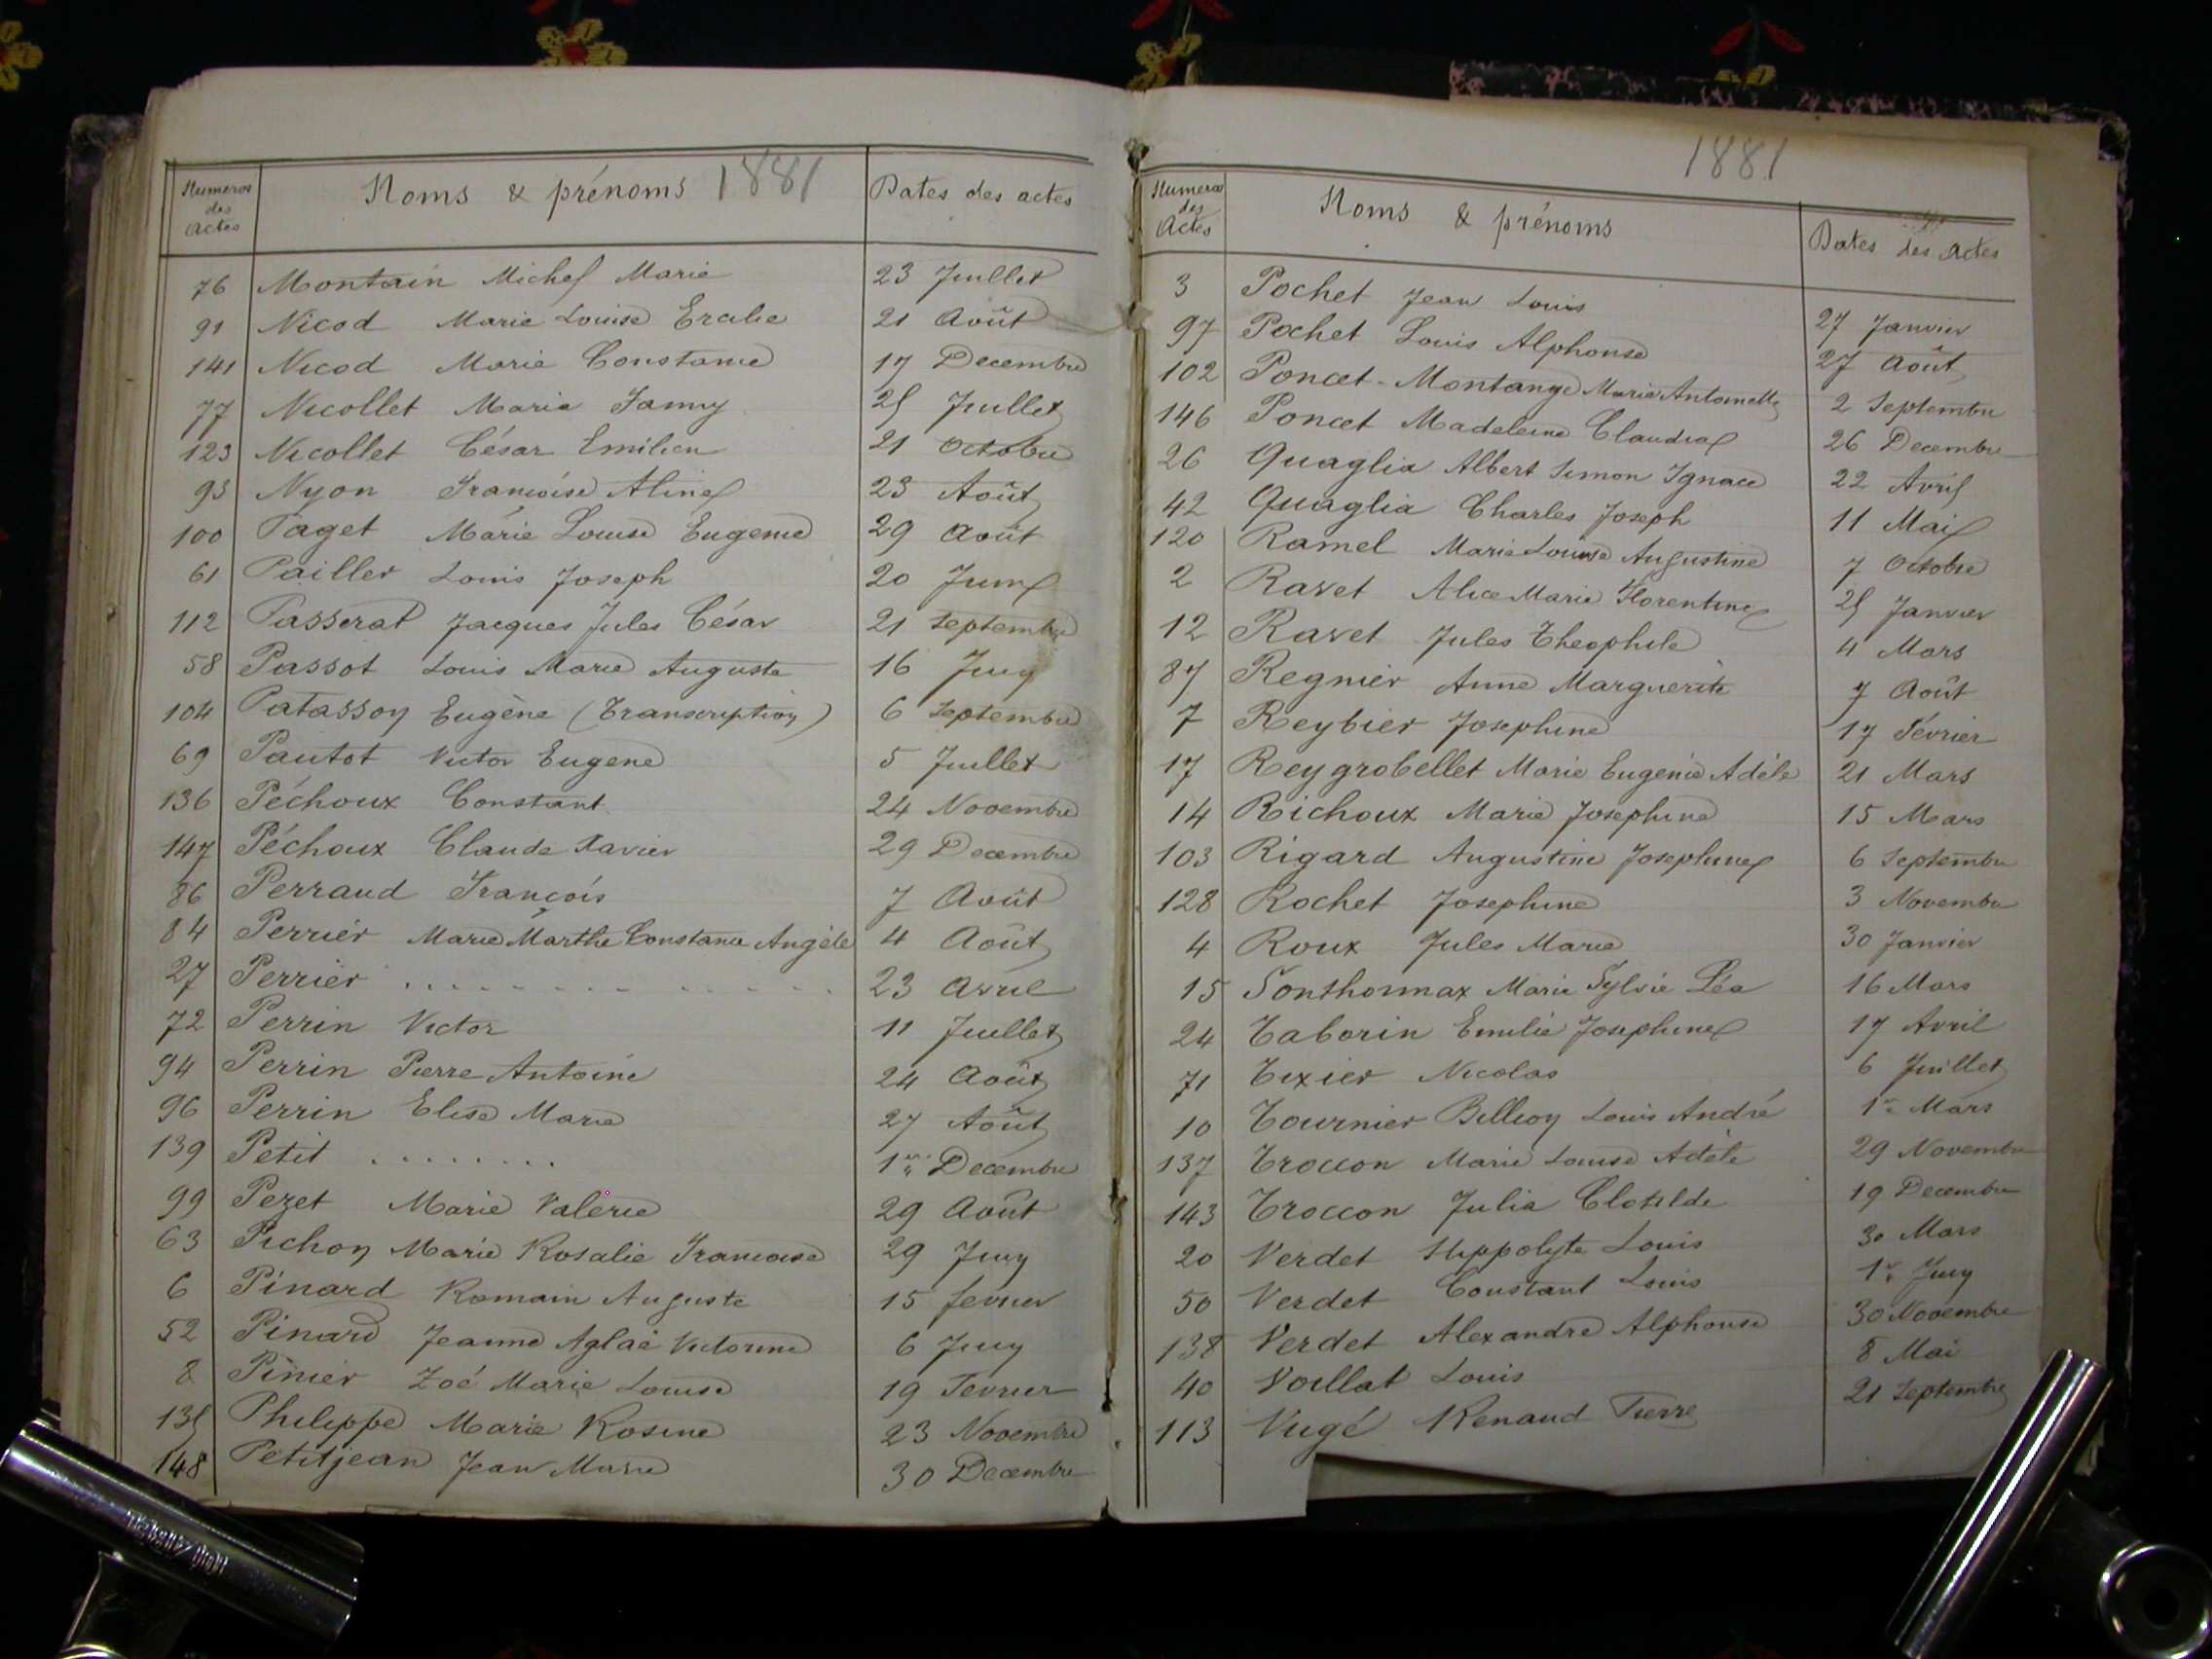 1881
Numeros des Actes Noms & prénoms Dates des actes
76 Montain Michel Marie 23 Juillet
91 Nicod Marie Louise Eralie 21 Août
141 Nicod Marie Constance 17 Decembre
77 Nicollet Maria Fanny 25 Juillet
123 Nicollet César Emilien 21 Octobre
93 Nyon Francoise Aline 23 Août
100 Paget Marie Louise Eugenie 29 Août
61 Pailler Louis Joseph 20 Juin
112 Passerat Jacques Jules César 21 Septembre
58 Passot Louis Marie Auguste 16 Juin
104 Patasson Eugène (Transcription) 6 Septembre
69 Pautot Victor Eugene 5 Juillet
136 Péchoux Constant 24 Novembre
147 Péchoux Claude Xavier 29 Decembre
86 Perraud Francois 7 Août
84 Perrier Marie Marthe Constance Angèle 4 Août
27 Perrier . . . . . . . . . . . . . 23 Avril
72 Perrin Victor 11 Juillet
94 Perrin Pierre Antoine 24 Août
96 Perrin Elise Marie 27 Août
139 Petit . . . . . . . . 1er Decembre
99 Pezet Marie Valerie 29 Août
63 Pichon Marie Rosalie Francoise 29 Juin
6 Pinard Romain Auguste 15 fevrier
52 Pinard Jeanne Aglaé Victorine 6 Juin
8 Pinier Zoé Marie Louise 19 Fevrier
135 Philippe Marie Rosine 23 Novembre
148 Petitjean Jean Marie 30 Decembre
1881
Numeros des Actes Noms & prénoms Dates des Actes
3 Pochet Jean Louis 27 Janvier
97 Pochet Louis Alphonse 27 Août
102 Poncet-Montange Marie Antoinette 2 Septembre
146 Poncet Madeleine Claudia 26 Decembre
26 Quaglia Albert Simon Ignace 22 Avril
42 Quaglia Charles Joseph 11 Mai
120 Ramel Marie Louise Augustine 7 Octobre
2 Ravet Alice Marie Florentine 25 Janvier
12 Ravet Jules Theophile 4 Mars
87 Regnier Anne Marguerite 7 Août
7 Reybier Josephine 17 Février
17 Reygrobellet Marie Eugenie Adèle 21 Mars
14 Richoux Marie Josephine 15 Mars
103 Rigard Augustine Josephine 6 Septembre
128 Rochet Josephine 3 Novembre
4 Roux Jules Marie 30 Janvier
15 Sonthonnax Marie Sylvie Léa 16 Mars
24 Taborin Emilie Josephine 17 Avril
71 Tixier Nicolas 6 Juillet
10 Tournier Billion Louis André 1er Mars
137 Troccon Marie Louise Adèle 29 Novembre
143 Troccon Julia Clotilde 19 Decembre
20 Verdet Hippolyte Louis 30 Mars
50 Verdet Constant Louis 1er Juin
138 Verdet Alexandre Alphonse 30 Novembre
40 Voillat Louis 8 Mai
113 Vugé Renaud Pierre 21 Septembre